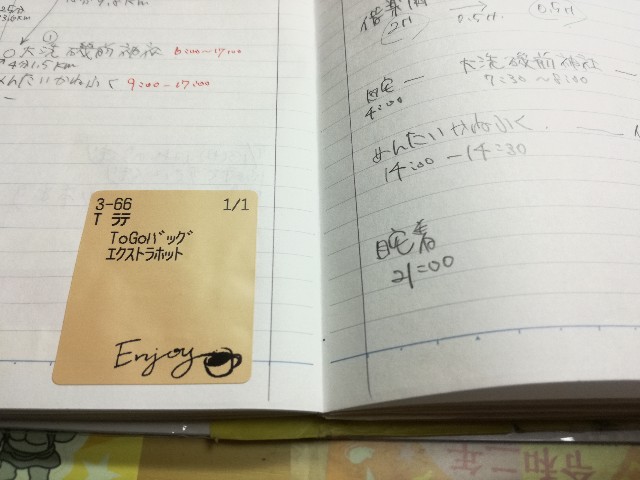 25分
① 
大洗磯前神社 6:00〜17:00
4分 1.5km
めんたいかねふく 9:00〜17:00
3-66 1/1
T ラテ
ToGoバッグ
エクストラホット
Enjoy
偕楽園
2H → 0.5H. 0.5H
自宅 — 大洗磯前神社 —
4:00 7:30〜8:00
めんたいかねふく. —
14:00 - 14:30
自宅着
21:00
令和二年